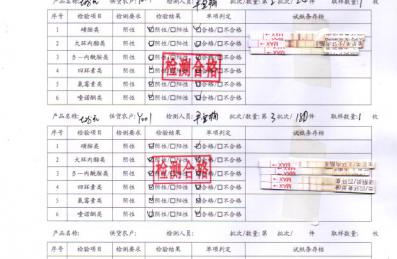 产品名称: 供货农户: 检测人员: 批次/数量: 第2批次/ 取样数量: 1 枚
序号 检验项目 检测要求 检验结果 单项判定 试纸条存根
1 磺胺类 阴性 ☑阴性/□阳性 ☑合格/□不合格
2 大环内酯类 阴性 ☑阴性/□阳性 ☑合格/□不合格
3 β-内酰胺类 阴性 ☑阴性/□阳性 ☑合格/□不合格
4 四环素类 阴性 ☑阴性/□阳性 ☑合格/□不合格
5 氟霉素类 阴性 ☑阴性/□阳性 ☑合格/□不合格
6 喹诺酮类 阴性 ☑阴性/□阳性 ☑合格/□不合格
检测合格
MAX
产品名称: 供货农户: Y001 检测人员: 批次/数量: 第3批次/180 取样数量: 1 枚
序号 检验项目 检测要求 检验结果 单项判定 试纸条存根
1 磺胺类 阴性 ☑阴性/□阳性 ☑合格/□不合格
2 大环内酯类 阴性 ☑阴性/□阳性 ☑合格/□不合格
3 β-内酰胺类 阴性 ☑阴性/□阳性 ☑合格/□不合格
4 四环素类 阴性 ☑阴性/□阳性 ☑合格/□不合格
5 氟霉素类 阴性 ☑阴性/□阳性 ☑合格/□不合格
6 喹诺酮类 阴性 ☑阴性/□阳性 ☑合格/□不合格
检测合格
MAX
MAX
MAX
产品名称: 供货农户: 检测人员: 批次/数量: 第 批次/ 取样数量: 枚
序号 检验项目 检测要求 检验结果 单项判定 试纸条存根